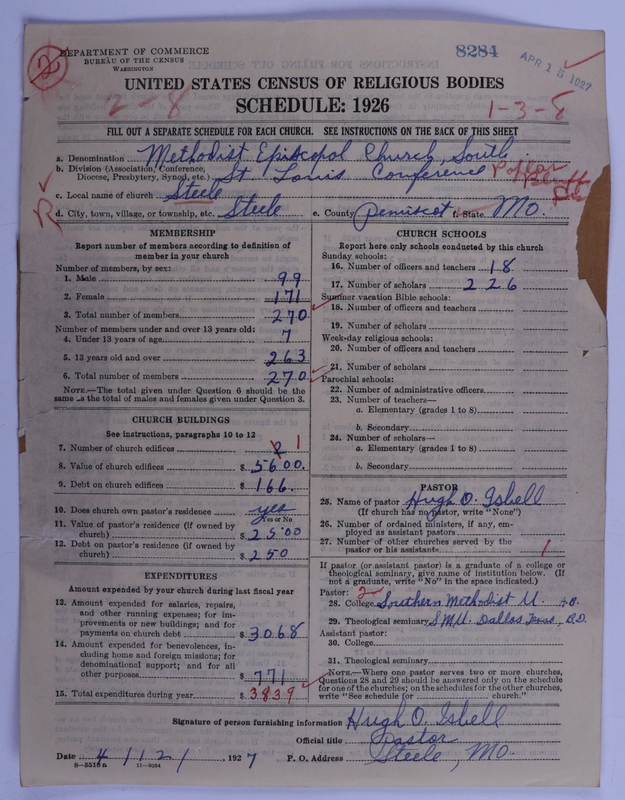 DEPARTMENT OF COMMERCE
BUREAU OF THE CENSUS
WASHINGTON
2
8284
APR 15 1927
UNITED STATES CENSUS OF RELIGIOUS BODIES
2-8
SCHEDULE: 1926
1-3-8
FILL OUT A SEPARATE SCHEDULE FOR EACH CHURCH. SEE INSTRUCTIONS ON THE BACK OF THIS SHEET
a. Denomination Methodist Episcopal Church, South
b. Division (Association, Conference, Diocese, Presbytery, Synod, etc.) St. Louis Conference
c. Local name of church Steele
R
d. City, town, village, or township, etc. Steele e. County Pemiscot f. State Mo.
MEMBERSHIP
Report number of members according to definition of
member in your church
Number of members, by sex:
1. Male 99
2. Female 171
3. Total number of members 270
Number of members under and over 13 years old:
4. Under 13 years of age 7
5. 13 years old and over 263
6. Total number of members 270
NOTE.—The total given under Question 6 should be the
same as the total of males and females given under Question 3.
CHURCH BUILDINGS
See instructions, paragraphs 10 to 12
7. Number of church edifices 2 1
8. Value of church edifices $ 5600.
9. Debt on church edifices $ 166.
10. Does church own pastor's residence yes
Yes or No
11. Value of pastor's residence (if owned by
church) $ 2500
12. Debt on pastor's residence (if owned by
church) $ 250
EXPENDITURES
Amount expended by your church during last fiscal year
13. Amount expended for salaries, repairs,
and other running expenses; for im-
provements or new buildings; and for
payments on church debt $ 3068
14. Amount expended for benevolences, in-
cluding home and foreign missions; for
denominational support; and for all
other purposes $ 771
15. Total expenditures during year $ 3839
CHURCH SCHOOLS
Report here only schools conducted by this church
Sunday schools:
16. Number of officers and teachers 18
17. Number of scholars 226
Summer vacation Bible schools:
18. Number of officers and teachers
19. Number of scholars
Week-day religious schools:
20. Number of officers and teachers
21. Number of scholars
Parochial schools:
22. Number of administrative officers
23. Number of teachers—
a. Elementary (grades 1 to 8)
b. Secondary
24. Number of scholars—
a. Elementary (grades 1 to 8)
b. Secondary
PASTOR
25. Name of pastor Hugh O. Isbell
(If church has no pastor, write "None")
26. Number of ordained ministers, if any, em-
ployed as assistant pastors
27. Number of other churches served by the
pastor or his assistants 1
If pastor (or assistant pastor) is a graduate of a college or
theological seminary, give name of institution below. (If
not a graduate, write "No" in the space indicated.)
Pastor: 2
28. College Southern Methodist U. A.B.
29. Theological seminary S.M.U. Dallas Texas, B.D.
Assistant pastor:
30. College
31. Theological seminary
NOTE.—Where one pastor serves two or more churches,
Questions 28 and 29 should be answered only on the schedule
for one of the churches; on the schedules for the other churches,
write "See schedule for church."
Signature of person furnishing information Hugh O. Isbell
Official title Pastor
Date 4/12/, 1927 P. O. Address Steele, Mo.
8-5518a 11-9084